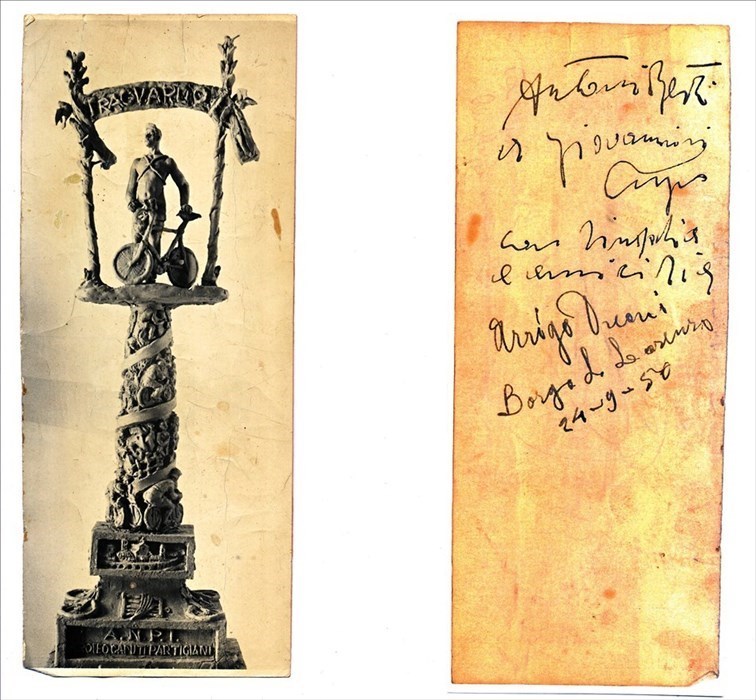 TRAGVARDO
A.N.P.I.
CADUTI PARTIGIANI
Antonio Berti
a Giovannini
con simpatia
e amicizia
Arrigo
Borgo S. Lorenzo
24-9-50